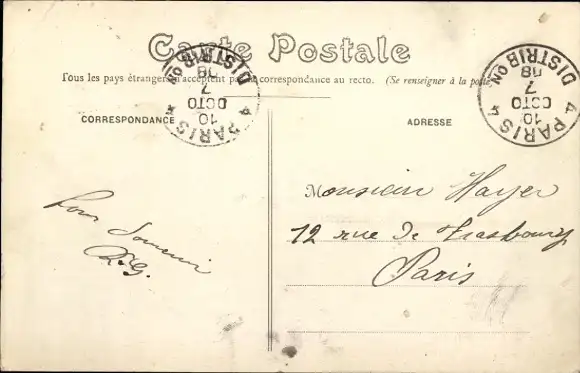 Carte Postale
Tous les pays étrangers n'acceptent pas de correspondance au recto. (Se renseigner à la poste
CORRESPONDANCE
ADRESSE
4 PARIS 4
10
OCTO
7
08
DISTRIBON
4 PARIS 4
10
OCTO
7
08
DISTRIBON
Monsieur Hayer
12 rue de Strasbourg
Paris
Pour Souvenir